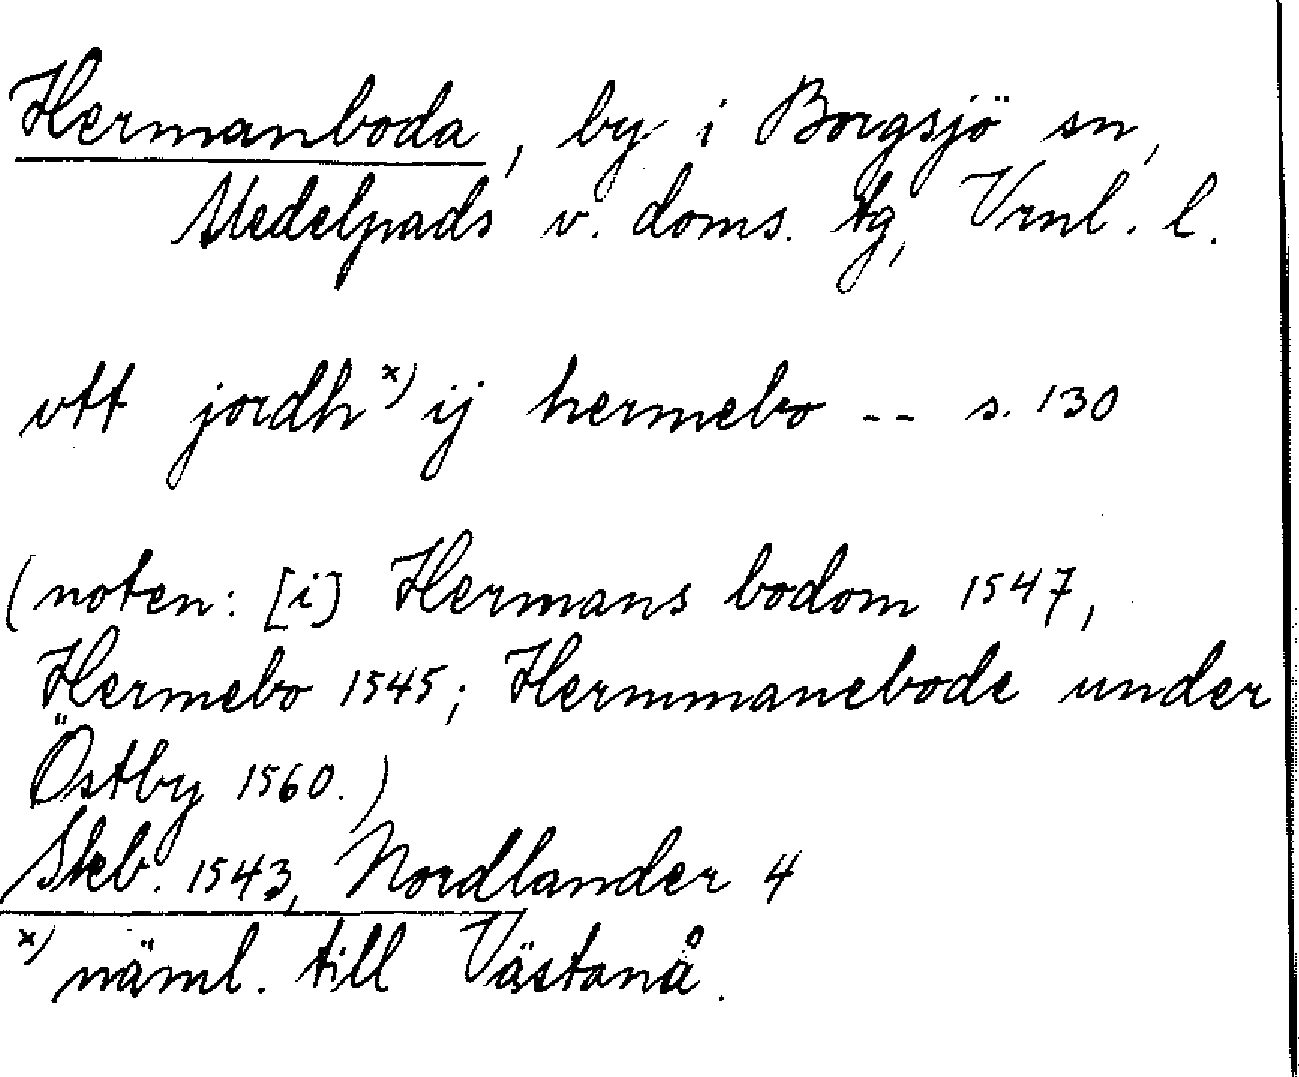 Hermanboda, by i Borgsjö sn,
Medelpads v. doms. tg, Vrnl. l.
vtt jordh x) ij hermebo -- s. 130
(noten: [i] Hermans bodom 1547,
Hermebo 1545; Hermmanebode under
Östby 1560.)
Skb. 1543, Nordlander 4
x) näml. till Västanå.